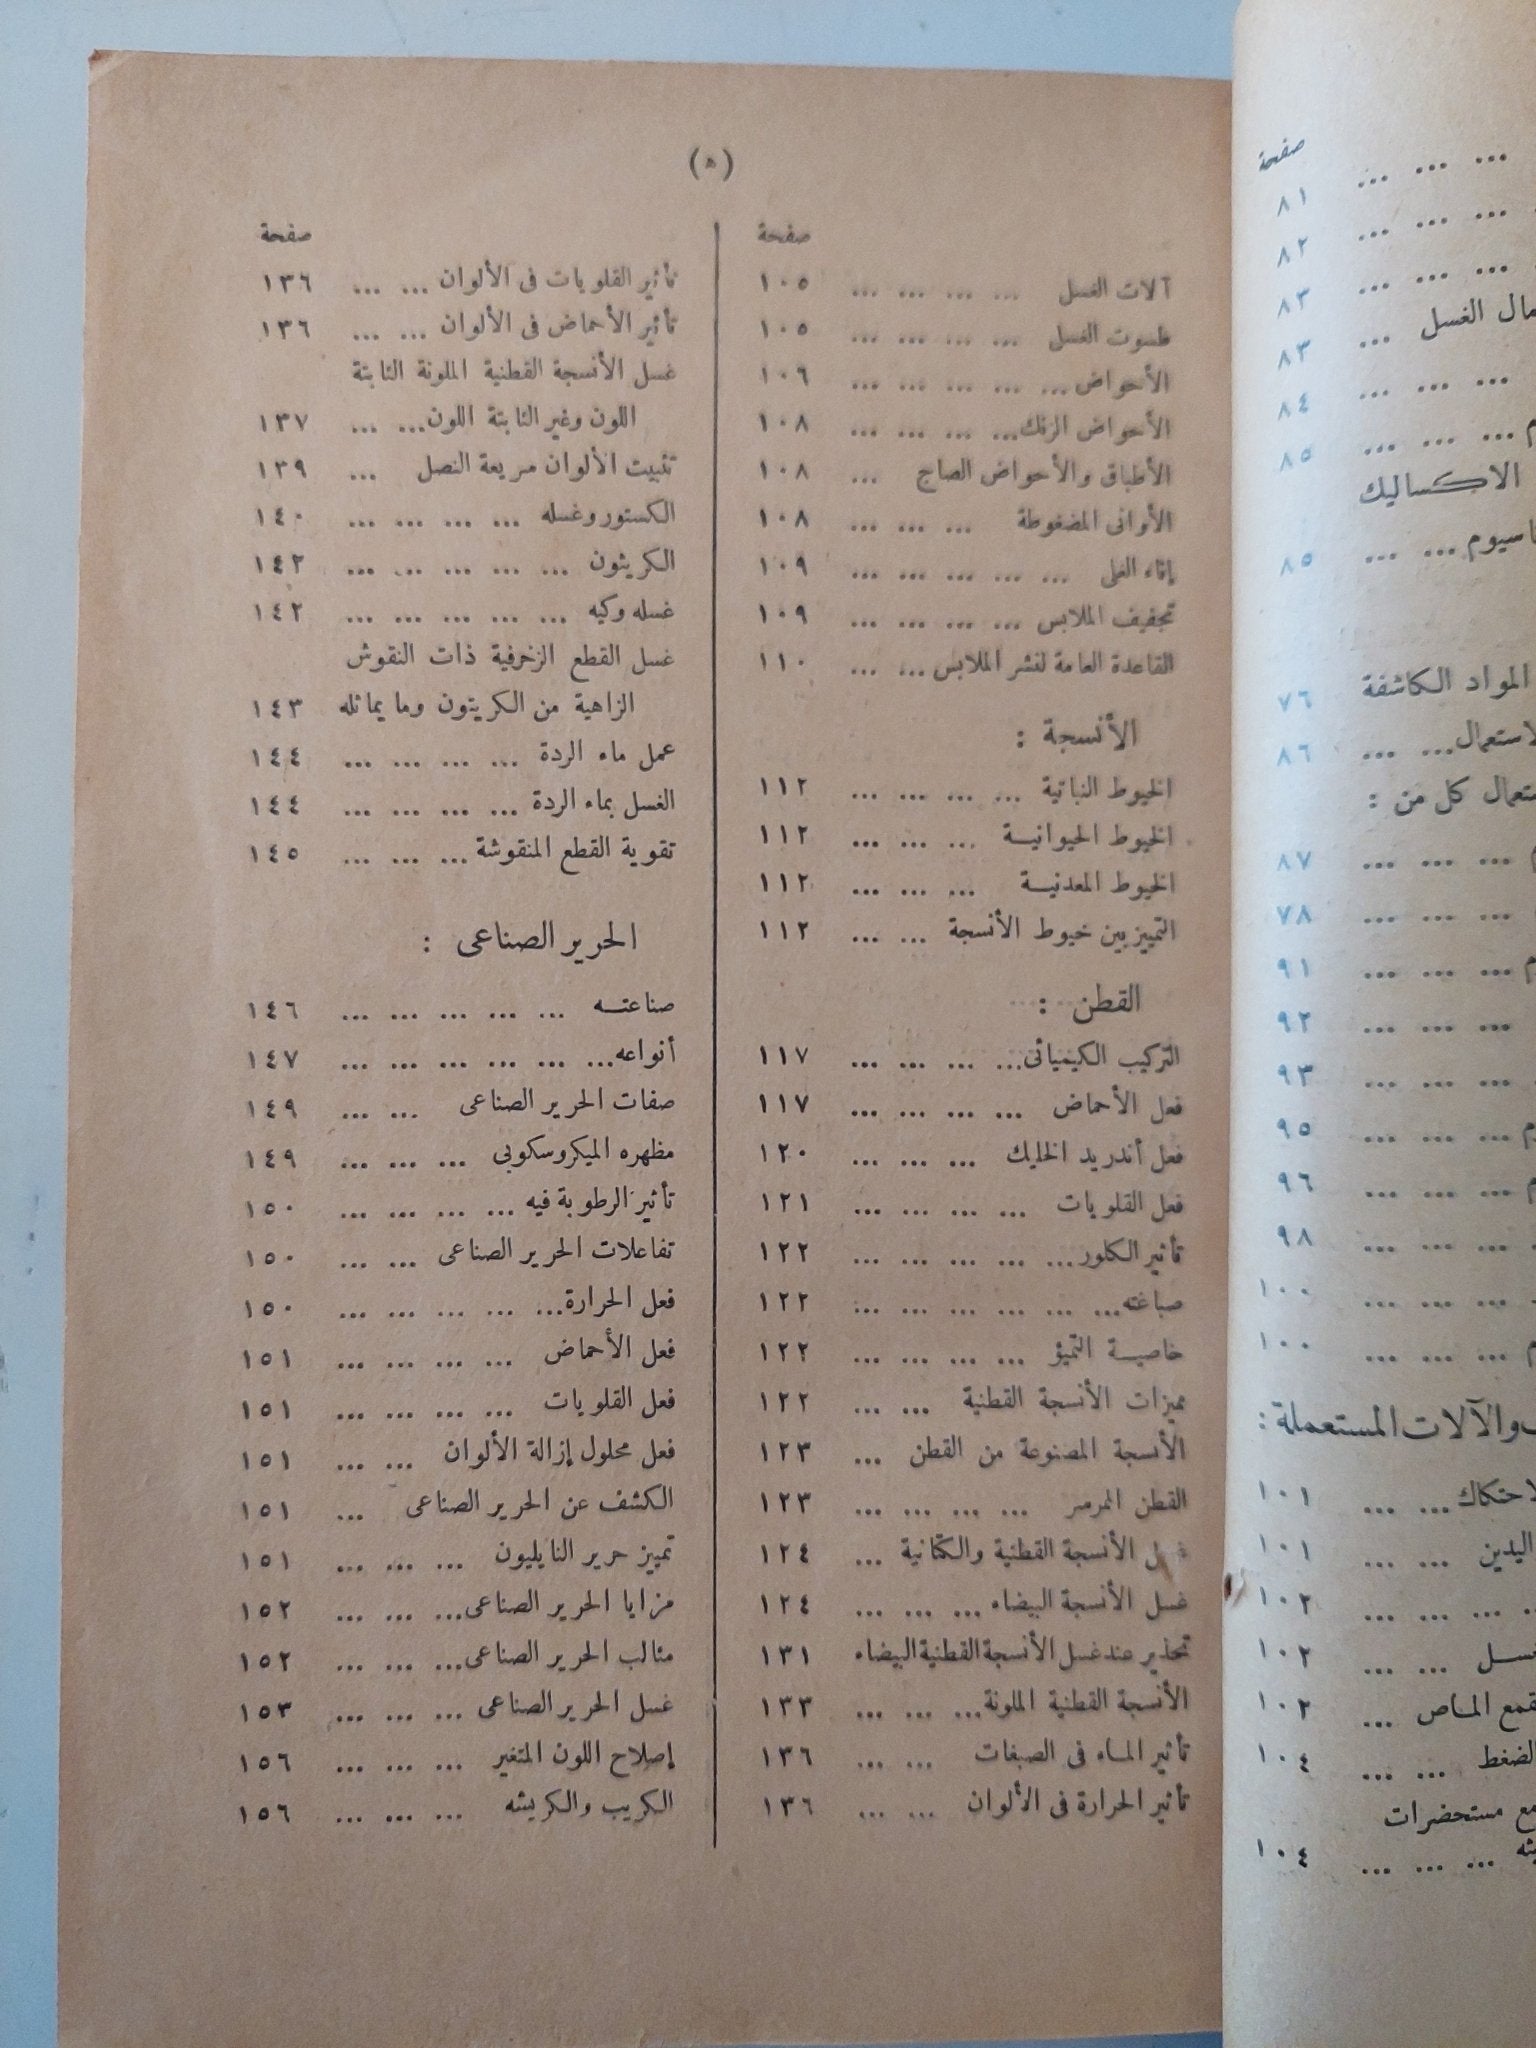 (ه)
صفحة
آلات الغسل ... ... ... ... ١٠٥
طسوت الغسل ... ... ... ... ١٠٥
الأحواض ... ... ... ... ... ١٠٦
الأحواض الزنك ... ... ... ... ١٠٨
الأطباق والأحواض الصاج ... ١٠٨
الأوانى المضغوطة ... ... ... ١٠٨
إناء الغلى ... ... ... ... ... ١٠٩
تجفيف الملابس ... ... ... ... ١٠٩
القاعدة العامة لنشر الملابس ... ... ١١٠
الأنسجة :
الخيوط النباتية ... ... ... ... ١١٢
الخيوط الحيوانيــة ... ... ... ١١٢
الخيوط المعدنيــة ... ... ... ١١٢
التمييز بين خيوط الأنسجة ... ... ١١٢
القطن :
التركيب الكيميائى ... ... ... ... ١١٧
فعل الأحماض ... ... ... ... ١١٧
فعل أندريد الخليك ... ... ... ١٢٠
فعل القلويات ... ... ... ... ١٢١
تأثير الكلور ... ... ... ... ... ١٢٢
صباغته ... ... ... ... ... ... ١٢٢
خاصيــة التميؤ ... ... ... ... ١٢٢
مميزات الأنسجة القطنية ... ... ١٢٢
الأنسجة المصنوعة من القطن ... ١٢٣
القطن الممرسر ... ... ... ... ١٢٣
غسل الأنسجة القطنية والكتانية ... ١٢٤
غسل الأنسجة البيضاء ... ... ... ١٢٤
تحذير عند غسل الأنسجة القطنية البيضاء ١٣١
الأنسجة القطنية الملونة ... ... ... ١٣٣
تأثير المــاء فى الصبغات ... ... ١٣٦
تأثير الحرارة فى الألوان ... ... ١٣٦
صفحة
تأثير القلويات فى الألوان ... ... ١٣٦
تأثير الأحماض فى الألوان ... ... ١٣٦
غسل الأنسجة القطنية الملونة الثابتة
اللون وغير الثابتة اللون ... ... ١٣٧
تثبيت الألوان سريعة النصل ... ١٣٩
الكستور وغسله ... ... ... ... ١٤٠
الكريتون ... ... ... ... ... ١٤٢
غسله وكيه ... ... ... ... ... ١٤٢
غسل القطع الزخرفية ذات النقوش
الزاهية من الكريتون وما يماثله ١٤٣
عمل ماء الردة ... ... ... ... ١٤٤
الغسل بماء الردة ... ... ... ... ١٤٤
تقوية القطع المنقوشة ... ... ... ١٤٥
الحرير الصناعى :
صناعتــه ... ... ... ... ... ١٤٦
أنواعه ... ... ... ... ... ... ١٤٧
صفات الحرير الصناعى ... ... ١٤٩
مظهره الميكروسكوبى ... ... ... ١٤٩
تأثير الرطوبة فيه ... ... ... ... ١٥٠
تفاعلات الحرير الصناعى ... ... ١٥٠
فعل الحرارة ... ... ... ... ... ١٥٠
فعل الأحماض ... ... ... ... ١٥١
فعل القلويات ... ... ... ... ١٥١
فعل محلول إزالة الألوان ... ... ١٥١
الكشف عن الحرير الصناعى ... ١٥١
تمييز حرير النايليون ... ... ... ١٥١
مزايا الحرير الصناعى ... ... ... ١٥٢
مثالب الحرير الصناعى ... ... ... ١٥٢
غسل الحرير الصناعى ... ... ... ١٥٣
إصلاح اللون المتغير ... ... ... ١٥٦
الكريب والكريشه ... ... ... ١٥٦
صفحة
... ... ... ٨١
... ... ... ٨٢
... ... ... ٨٣
الغسل ... ٨٣
... ... ... ٨٤
... ... ... ٨٥
الاكساليك
... ... ٨٥
المواد الكاشفة ٧٦
... ... ٨٦
كل من :
... ... ... ٨٧
... ... ... ٧٨
... ... ... ٩١
... ... ... ٩٢
... ... ... ٩٣
... ... ... ٩٥
... ... ... ٩٦
... ... ... ٩٨
... ... ... ١٠٠
... ... ... ١٠٠
والآلات المستعملة :
... ... ١٠١
اليدين ... ... ١٠١
... ... ... ١٠٢
... ... ١٠٢
المــاص ... ١٠٢
... ... ١٠٤
مستحضرات
... ... ... ١٠٤